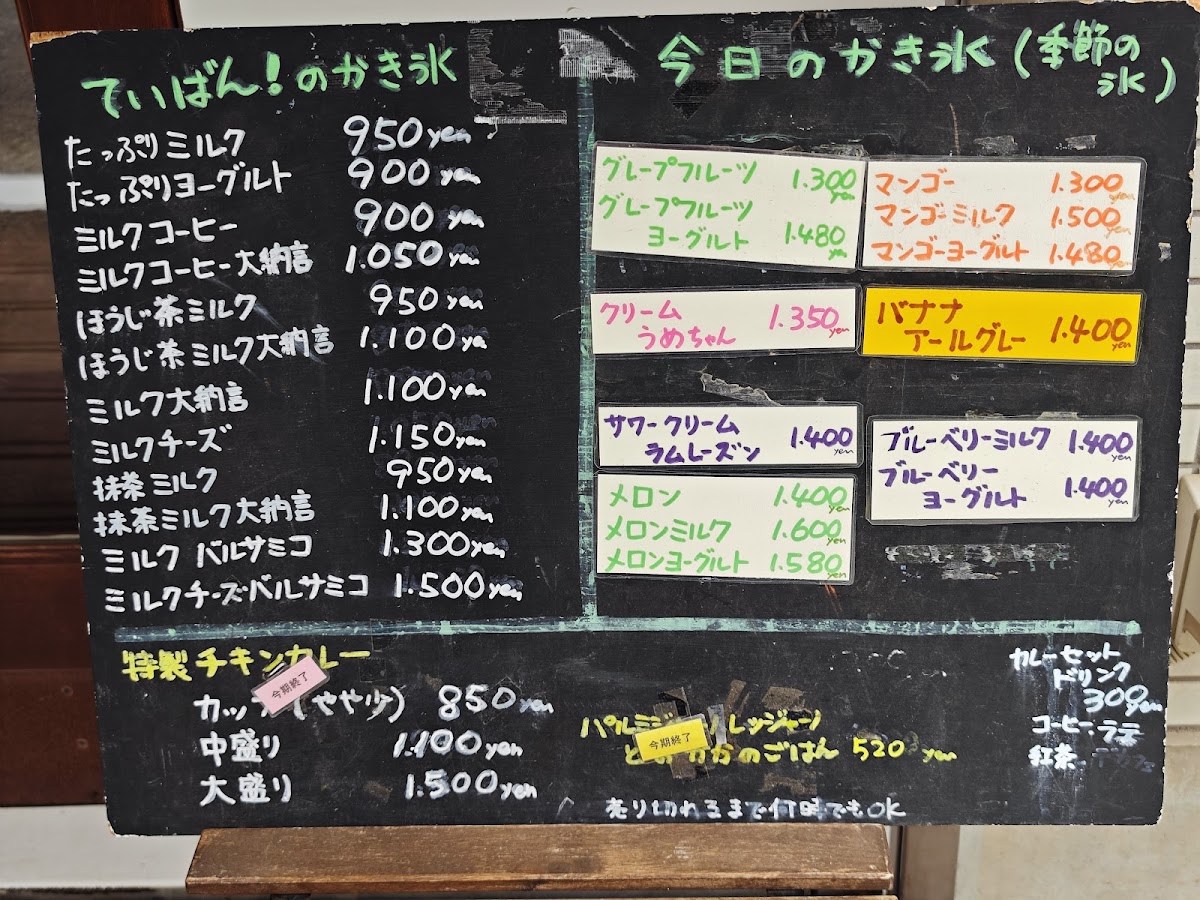 ていばん！のかき氷
たっぷりミルク 950yen
たっぷりヨーグルト 900yen
ミルクコーヒー 900yen
ミルクコーヒー大納言 1.050yen
ほうじ茶ミルク 950yen
ほうじ茶ミルク大納言 1.100ye
ミルク大納言 1.100yen
ミルクチーズ 1.150yen
抹茶ミルク 950yen
抹茶ミルク大納言 1.100yen
ミルク バルサミコ 1.300yen
ミルクチーズバルサミコ 1.500yen
今日のかき氷(季節の
氷)
グレープフルーツ 1.300yen
グレープフルーツ
ヨーグルト 1.480yen
マンゴー 1.300yen
マンゴーミルク 1.500yen
マンゴーヨーグルト 1.480yen
クリーム
うめちゃん 1.350yen
バナナ
アールグレー 1.400yen
サワークリーム
ラムレーズン 1.400yen
ブルーベリーミルク 1.400yen
ブルーベリー
ヨーグルト 1.400yen
メロン 1.400yen
メロンミルク 1.600yen
メロンヨーグルト 1.580yen
特製チキンカレー
今期終了
カップ(やや少) 850yen
中盛り 1.100yen
大盛り 1.500yen
レッジャーノ
今期終了
かのごはん 520yen
売り切れるまで何時でもOK
カレーセット
ドリンク
300yen
コーヒー.ラテ
紅茶.